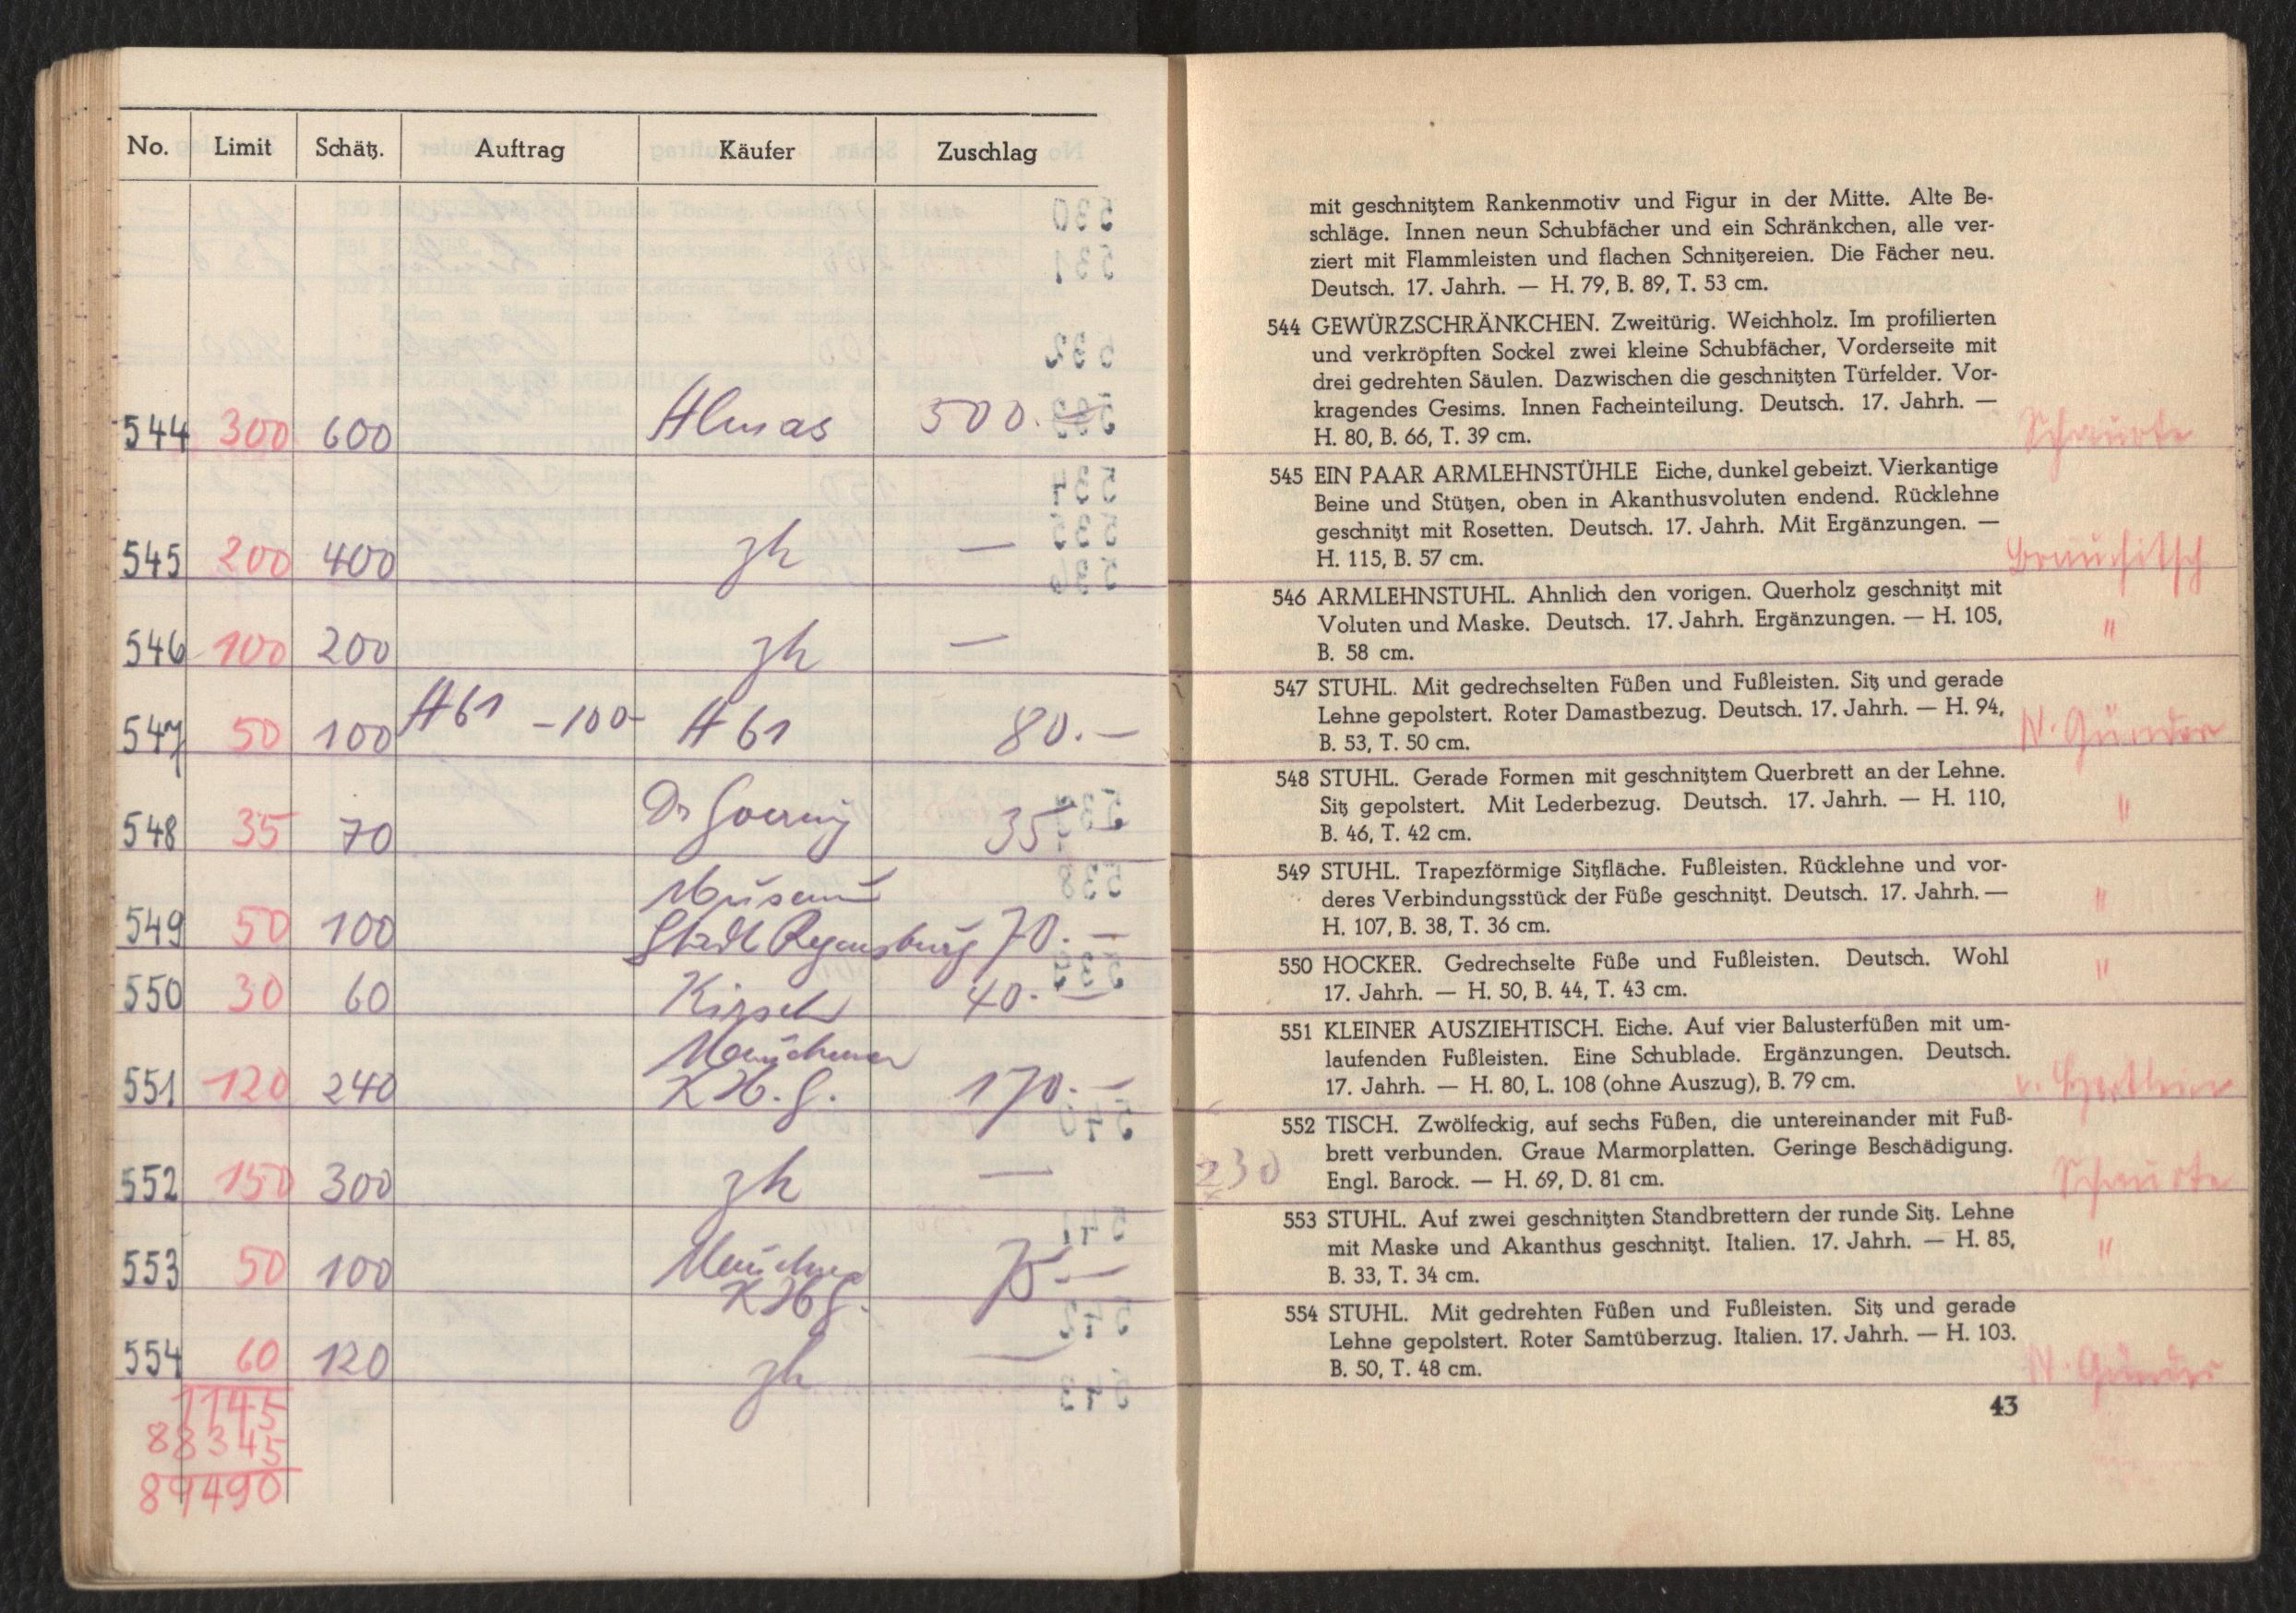 No. Limit Schätz. Auftrag Käufer Zuschlag
544 300 600 Almas 500.—
545 200 400 zh —
546 100 200 zh —
547 50 100 A 61 -100- A 61 80.—
548 35 70 Dr Goering 35.—
549 50 100 Museum
Stadt Regensburg 70.—
550 30 60 Kirsch 40.—
551 120 240 Münchner
K.H.G. 170.—
552 150 300 zh —
553 50 100 Münchner
KHG. 75.—
554 60 120 zh —
1145
88345
89490
mit geschnitztem Rankenmotiv und Figur in der Mitte. Alte Be-
schläge. Innen neun Schubfächer und ein Schränkchen, alle ver-
ziert mit Flammleisten und flachen Schnitzereien. Die Fächer neu.
Deutsch. 17. Jahrh. — H. 79, B. 89, T. 53 cm.
544 GEWÜRZSCHRÄNKCHEN. Zweitürig. Weichholz. Im profilierten
und verkröpften Sockel zwei kleine Schubfächer, Vorderseite mit
drei gedrehten Säulen. Dazwischen die geschnitzten Türfelder. Vor-
kragendes Gesims. Innen Facheinteilung. Deutsch. 17. Jahrh. —
H. 80, B. 66, T. 39 cm. Schaurte
545 EIN PAAR ARMLEHNSTÜHLE Eiche, dunkel gebeizt. Vierkantige
Beine und Stützen, oben in Akanthusvoluten endend. Rücklehne
geschnitzt mit Rosetten. Deutsch. 17. Jahrh. Mit Ergänzungen. —
H. 115, B. 57 cm. Brauchitsch
546 ARMLEHNSTUHL. Ahnlich den vorigen. Querholz geschnitzt mit
Voluten und Maske. Deutsch. 17. Jahrh. Ergänzungen. — H. 105, "
B. 58 cm.
547 STUHL. Mit gedrechselten Füßen und Fußleisten. Sitz und gerade
Lehne gepolstert. Roter Damastbezug. Deutsch. 17. Jahrh. — H. 94,
B. 53, T. 50 cm. N. Günder
548 STUHL. Gerade Formen mit geschnitztem Querbrett an der Lehne.
Sitz gepolstert. Mit Lederbezug. Deutsch. 17. Jahrh. — H. 110, "
B. 46, T. 42 cm.
549 STUHL. Trapezförmige Sitzfläche. Fußleisten. Rücklehne und vor-
deres Verbindungsstück der Füße geschnitzt. Deutsch. 17. Jahrh. — "
H. 107, B. 38, T. 36 cm.
550 HOCKER. Gedrechselte Füße und Fußleisten. Deutsch. Wohl "
17. Jahrh. — H. 50, B. 44, T. 43 cm.
551 KLEINER AUSZIEHTISCH. Eiche. Auf vier Balusterfüßen mit um-
laufenden Fußleisten. Eine Schublade. Ergänzungen. Deutsch.
17. Jahrh. — H. 80, L. 108 (ohne Auszug), B. 79 cm.
552 TISCH. Zwölfeckig, auf sechs Füßen, die untereinander mit Fuß-
brett verbunden. Graue Marmorplatten. Geringe Beschädigung.
230 Engl. Barock. — H. 69, D. 81 cm. Schaurte
553 STUHL. Auf zwei geschnitzten Standbrettern der runde Sitz. Lehne
mit Maske und Akanthus geschnitzt. Italien. 17. Jahrh. — H. 85, "
B. 33, T. 34 cm.
554 STUHL. Mit gedrehten Füßen und Fußleisten. Sitz und gerade
Lehne gepolstert. Roter Samtüberzug. Italien. 17. Jahrh. — H. 103.
B. 50, T. 48 cm. N. Günder
43